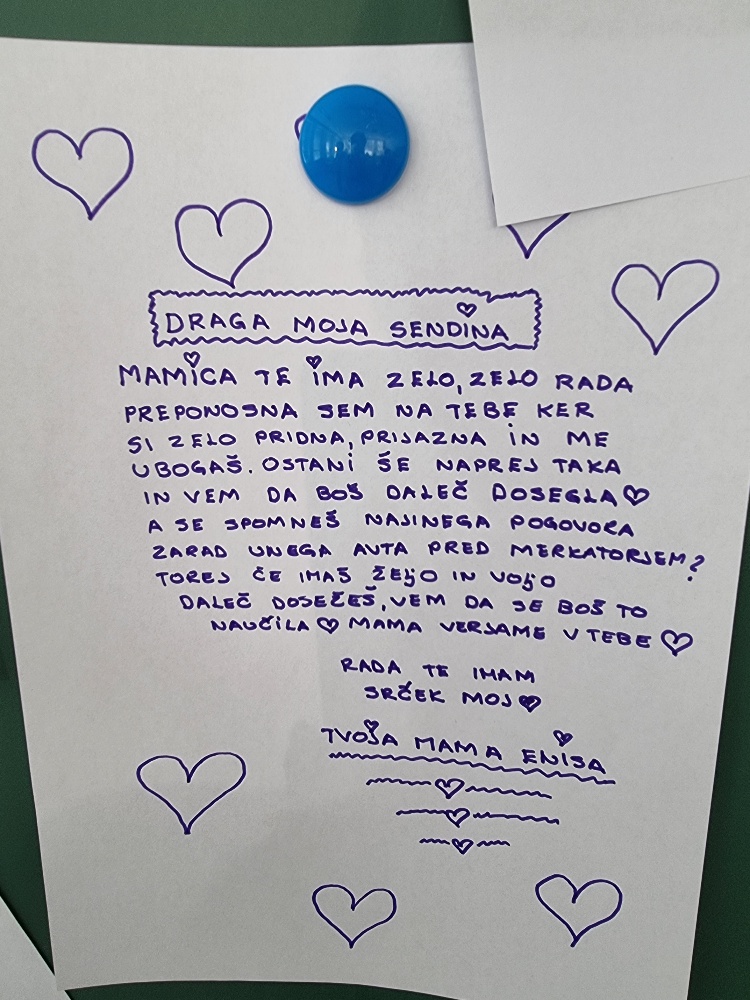 DRAGA MOJA SENDINA
MAMICA TE IMA ZELO, ZELO RADA
PREPONOSNA SEM NA TEBE KER
SI ZELO PRIDNA, PRIJAZNA IN ME
UBOGAŠ. OSTANI ŠE NAPREJ TAKA
IN VEM DA BOŠ DALEČ DOSEGLA ♡
A SE SPOMNEŠ NAJINEGA POGOVORA
ZARAD UNEGA AVTA PRED MERKATORJEM?
TOREJ ČE IMAŠ ŽEJO IN VOJO
DALEČ DOSEŽEŠ, VEM DA SE BOŠ TO
NAUČILA ♡ MAMA VERJAME V TEBE ♡
RADA TE IMAM
SRČEK MOJ ♡
TVOJA MAMA ENISA